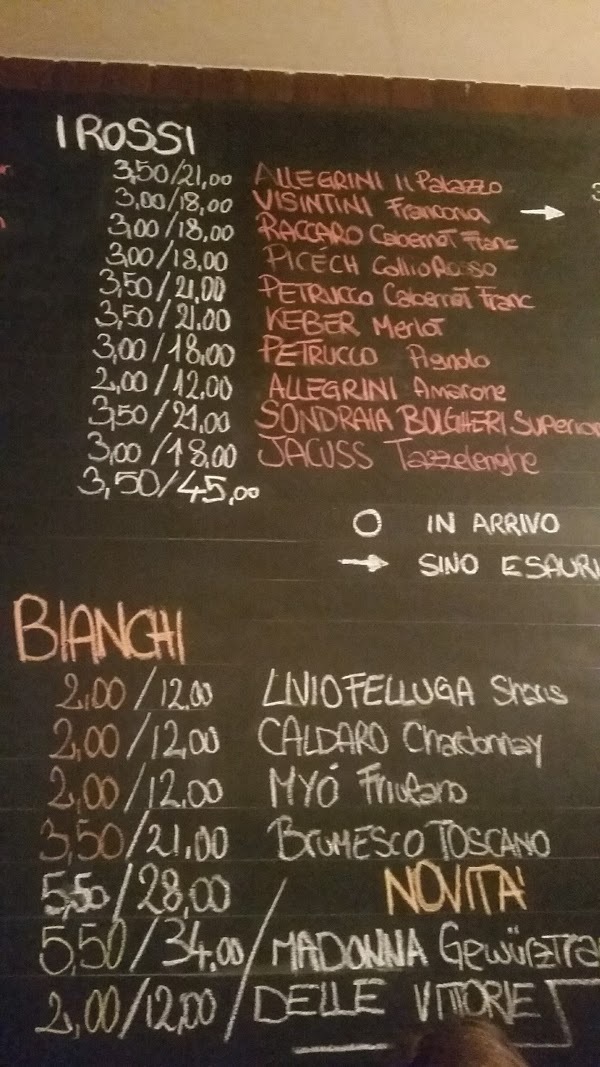 I ROSSI
3,50/21,00 ALLEGRINI Il Palazzo
3,00/18,00 VISINTINI Franconia →
3,00/18,00 RACCARO Cabernet Franc
3,00/18,00 PICECH Collio Rosso
3,50/21,00 PETRUCCO Cabernet Franc
3,50/21,00 KEBER Merlot
3,00/18,00 PETRUCCO Pignolo
2,00/12,00 ALLEGRINI Amarone
3,50/21,00 SONDRAIA BOLGHERI Superior
3,00/18,00 JACUSS Tazzelenghe
3,50/45,00
O IN ARRIVO
→ SINO ESAURI
BIANCHI
2,00/12,00 LIVIO FELLUGA Sharis
2,00/12,00 CALDARO Chardonnay
2,00/12,00 MYÓ Friulano
3,50/21,00 BRUMESCO TOSCANO
5,50/28,00 / NOVITA'
5,50/34,00 / MADONNA Gewürztra
2,00/12,00 / DELLE VITTORIE